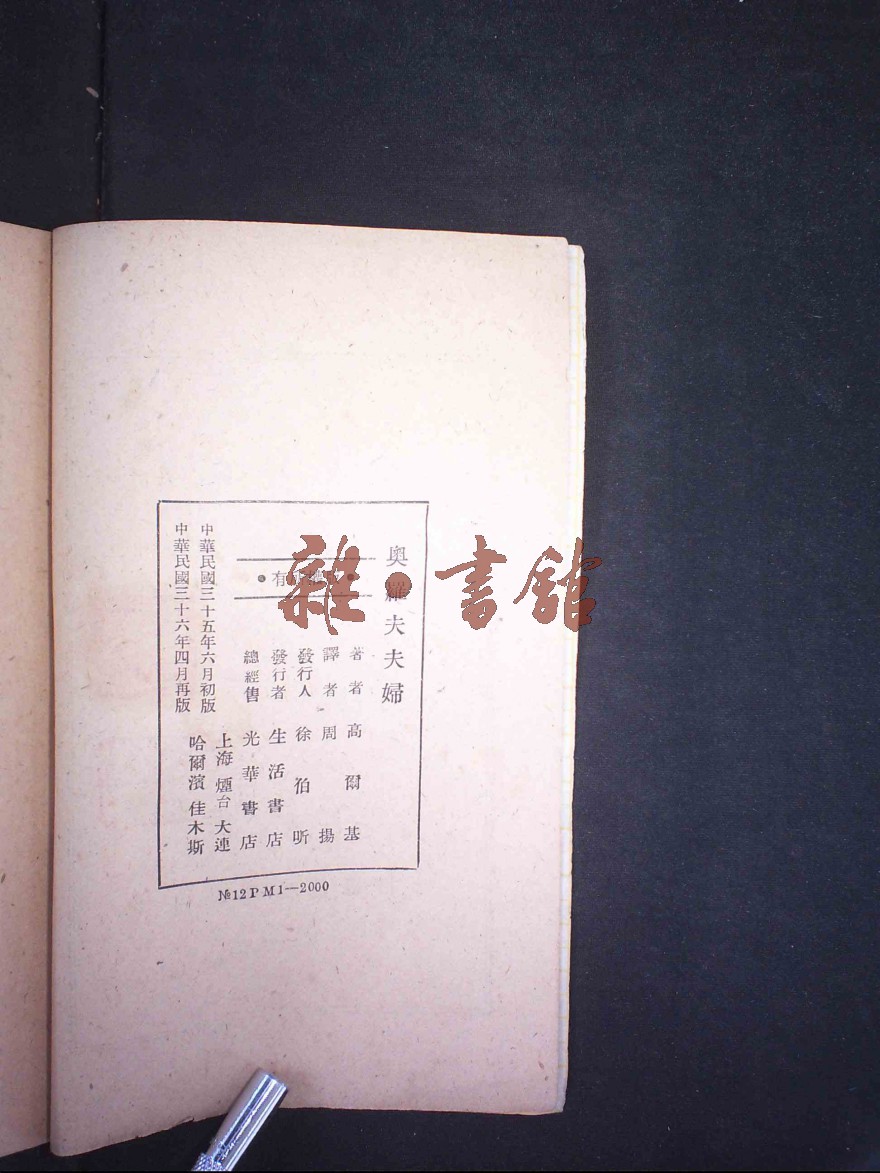 奧羅夫夫婦
有
著者 高爾基
譯者 周揚
發行人 徐伯昕
發行者 生活書店
總經售 光華書店
上海 煙台 大連
哈爾濱 佳木斯
中華民國三十五年六月初版
中華民國三十六年四月再版
№12PM1—2000
雜·書館